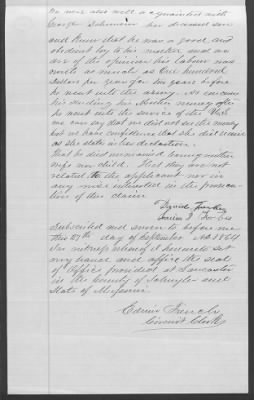 We were also well acquainted with
George                     her deceased son
and knew that he was a good and
obedient boy to his mother and we
are of the opinion his labour was
worth as much as One hundred
dollars per year for        years before
he went into the army. As concerns
his sending his Mother money after
he went into the service of the
we can say that we did not see the money
but we have confidence that she did receive
as she states in her declaration.
That he died unmarried leaving neither
wife nor child. That they are not
related to the applicant nor in
any wise interested in the prosecu-
tion of this claim
David
Subscribed and sworn to before me
this 27th day of September AD 1864
In witness whereof I hereunto set
my hand and affix the seal
of Office provided at Lancaster
in the County of Schuyler and
State of Missouri
Edwin French
Circuit Clerk